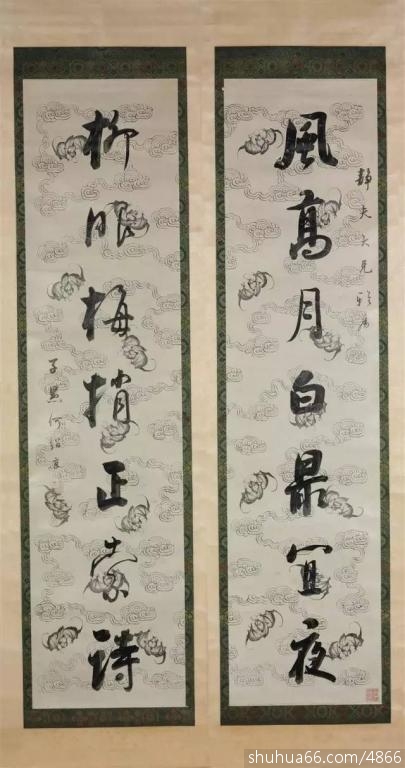 靜夫大兄雅屬
風高月白最宜夜
柳眼梅梢正索詩
子貞何紹基
shuhua66.com/4866